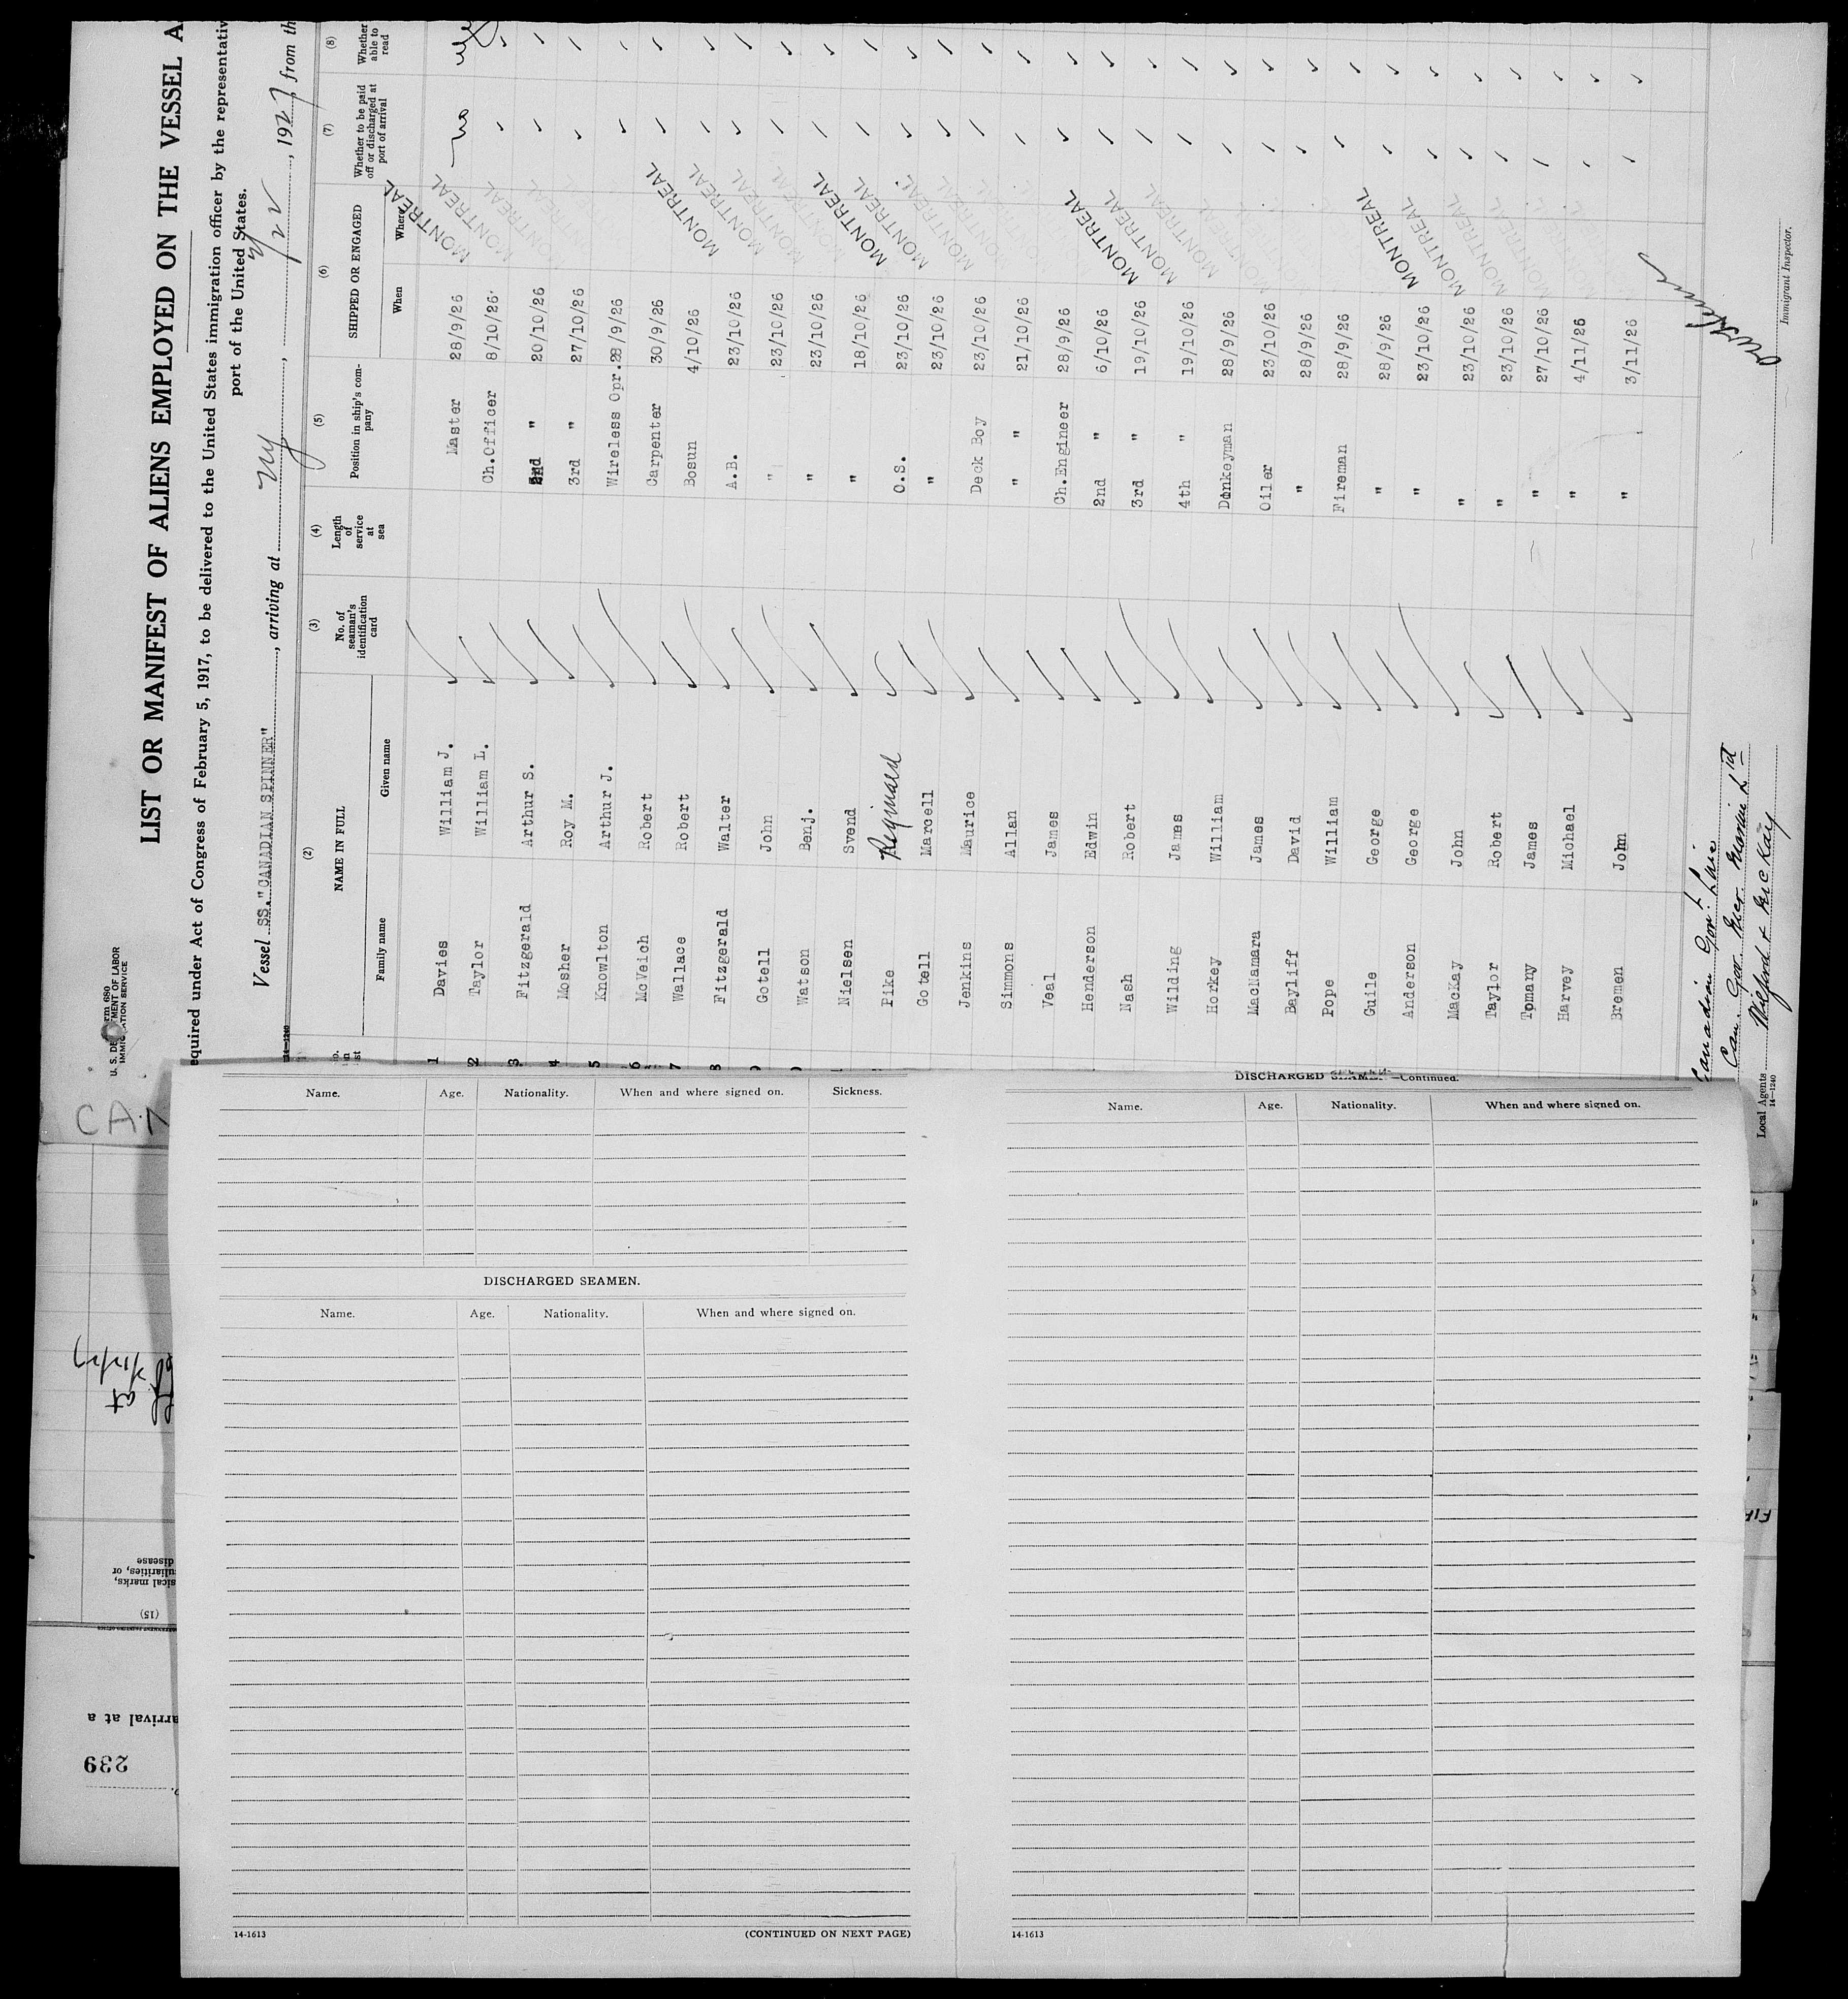 Form 680
U. S. DEPARTMENT OF LABOR
IMMIGRATION SERVICE
LIST OR MANIFEST OF ALIENS EMPLOYED ON THE VESSEL A
equired under Act of Congress of February 5, 1917, to be delivered to the United States immigration officer by the representativ
port of the United States.
Vessel SS."CANADIAN SPINNER", arriving at NY, 2/22, 1927, from th
14—1240
(2) (3) (4) (5) (6) (7) (8)
NAME IN FULL No. of seaman's identification card Length of service at sea Position in ship's company SHIPPED OR ENGAGED Whether to be paid off or discharged at port of arrival Whether able to read
Family name Given name When Where
1 Davies William J. Master 28/9/26 MONTREAL no
2 Taylor William L. Ch.Officer 8/10/26 MONTREAL
3 Fitzgerald Arthur S. 2nd " 20/10/26 MONTREAL
4 Mosher Roy M. 3rd " 27/10/26
5 Knowlton Arthur J. Wireless Opr. 28/9/26
6 McVeich Robert Carpenter 30/9/26
7 Wallace Robert Bosun 4/10/26 MONTREAL
8 Fitzgerald Walter A.B. 23/10/26 MONTREAL
Gotell John " 23/10/26 MONTREAL
Watson Benj. " 23/10/26 MONTREAL
Nielsen Svend " 18/10/26 MONTREAL
Pike Reginald O.S. 23/10/26 MONTREAL
Gotell Marcell " 23/10/26 MONTREAL
Jenkins Maurice Deck Boy 23/10/26 MONTREAL
Simmons Allan " 21/10/26
Veal James Ch.Engineer 28/9/26
Henderson Edwin 2nd " 6/10/26 MONTREAL
Nash Robert 3rd " 19/10/26 MONTREAL
Wilding James 4th " 19/10/26 MONTREAL
Horkey William Donkeyman 28/9/26 MONTREAL
MacNamara James Oiler 23/10/26
Bayliff David " 28/9/26
Pope William Fireman 28/9/26
Guile George " 28/9/26 MONTREAL
Anderson George " 23/10/26 MONTREAL
MacKay John " 23/10/26 MONTREAL
Taylor Robert " 23/10/26 MONTREAL
Tomany James " 27/10/26
Harvey Michael " 4/11/26
Bremen John " 3/11/26
Immigrant Inspector.
Local Agents Wilford & McKay
14—1240
CAN
DISCHARGED SEAMEN—Continued.
Name. Age. Nationality. When and where signed on. Sickness.
Name. Age. Nationality. When and where signed on.
DISCHARGED SEAMEN.
Name. Age. Nationality. When and where signed on.
14-1613
(CONTINUED ON NEXT PAGE)
14-1613
at
disease
uliarities, or
sical marks,
(15)
arrival at a
239